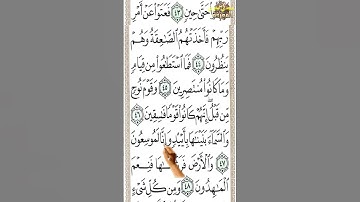 حَتَّىٰ حِينٍ ٤٣ فَعَتَوْا۟ عَنْ أَمْرِ
رَبِّهِمْ فَأَخَذَتْهُمُ ٱلصَّٰعِقَةُ وَهُمْ
يَنظُرُونَ ٤٤ فَمَا ٱسْتَطَٰعُوا۟ مِن قِيَامٍ
وَمَا كَانُوا۟ مُنتَصِرِينَ ٤٥ وَقَوْمَ نُوحٍ
مِّن قَبْلُ إِنَّهُمْ كَانُوا۟ قَوْمًا فَٰسِقِينَ ٤٦
وَٱلسَّمَآءَ بَنَيْنَٰهَا بِأَيْي۟دٍ وَإِنَّا لَمُوسِعُونَ
٤٧ وَٱلْأَرْضَ فَنِعْمَ
ٱلْمَٰهِدُونَ ٤٨ وَمِن كُلِّ شَىْءٍ